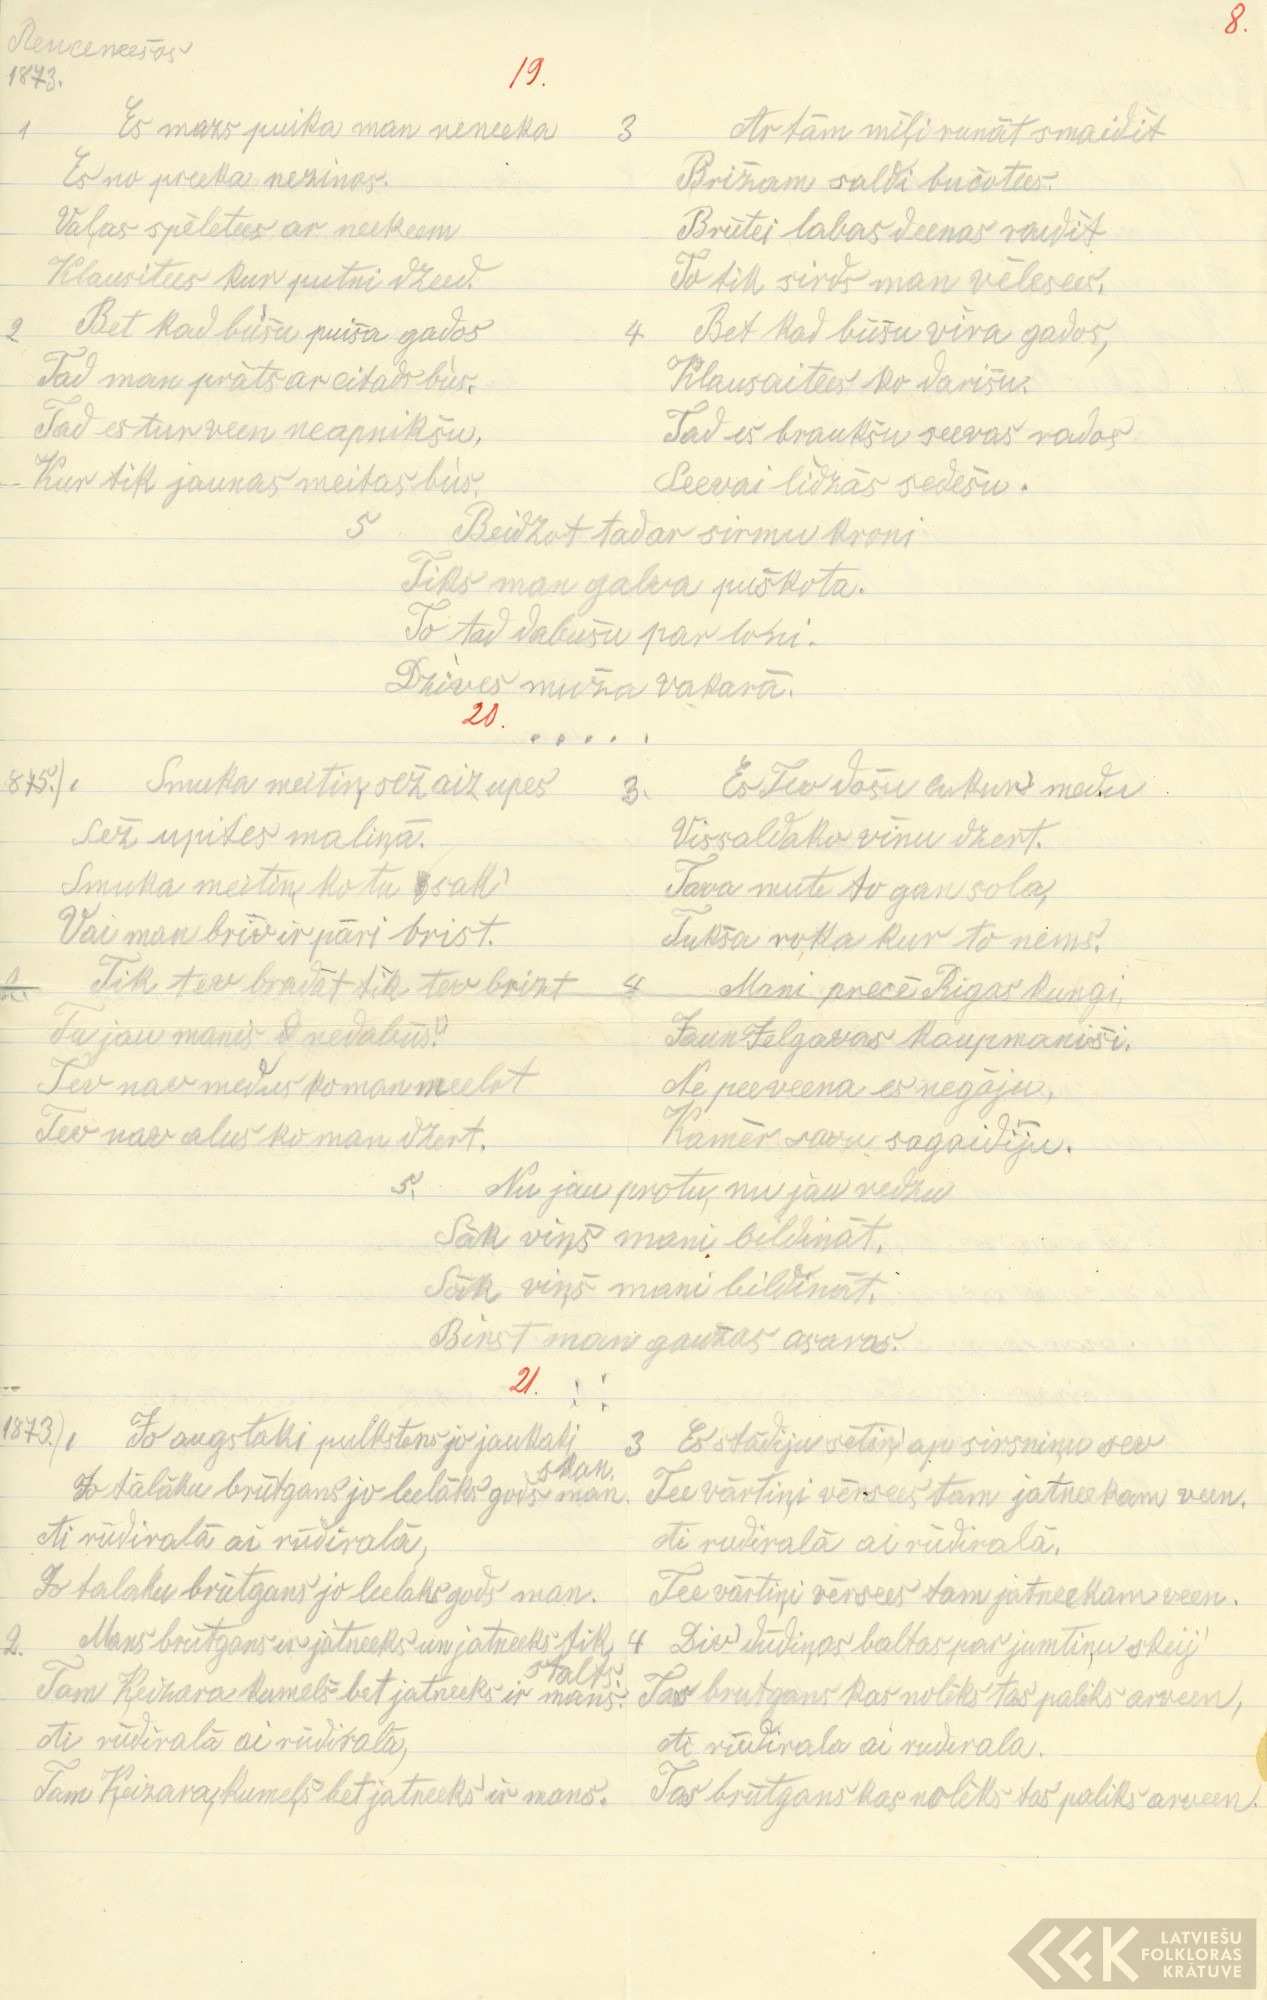 8.
Rencenešos
1873.
19.
1 Es mazs puika man neneeka
Es no preeka nezinos.
Vaļas spēletees ar neekeem
Klausitees kur putni dzeed.
2 Bet kad būšu puiša gados
Tad man prāts ar citads būs.
Tad es tur veen neapnikšu,
Kur tik jaunas meitas būs.
3 Ar tām mīļi runāt smaidīt
Brīžam saldi bučotees.
Brūtei labas deenas raidīt
To tik sirds man vēlesees.
4 Bet kad būšu vīra gados,
Klausaitees ko darišu.
Tad es braukšu seevas rados
Seevai līdzās sedešu.
5 Beidzot tad ar sirmu kroni
Tiks man galva puškota.
To tad dabušu par loni.
Dzīves muža vakarā.
20.
875.) 1 Smuka meitiņ sēž aiz upes
Sēž upites maliņā.
Smuka meitiņ ko tu saki
Vai man brīv ir pāri brist.
Tik tev bradāt tik tev brizt
Tu jau manis nedabūs!
Tev nav medus ko man meelot
Tev nav alus ko man dzert.
3. Es Tev došu cukur medu
Vissaldako vīnu dzert.
Tava mute to gan sola,
Tukša roka kur to ņems.
4 Mani precē Rigas kungi,
Jaun Jelgavas kaupmaniši.
Ne pee veena es negāju,
Kamēr savu sagaidīju.
5. Nu jau protu, nu jau redzu
Sāk viņš mani bildināt.
Sāk viņš mani bildināt.
Birst man gaužas asaras.
21.
1873.) 1 Jo augstaki pulkstens jo jaukaki
skan.
Jo tālāku brūtgans jo leelāks gods man.
Ai rūdiralā ai rūdiralā,
Jo talaku brūtgans jo leelaks gods man.
2. Mans brūtgans ir jātneeks un jātneeks tik
stalts.
Tam Ķeizara kumeļš bet jatneeks ir mans.
Ai rūdiralā ai rūdirala,
Tam Ķeizara kumeļš bet jatneeks ir mans.
3 Es stādiju sētiņ ap sirsniņu sev
Tee vārtiņi vērsees tam jātneekam veen.
Ai rudiralā ai rūdiralā.
Tee vārtiņi vērsees tam jātneekam veen.
4 Div dūdiņas baltas par jumtiņu skrij
Tas brutgans kas nolēks tas paliks arveen,
Ai rūdirala ai rudirala.
Tas brūtgans kas nolēks tas paliks arveen.
LATVIEŠU
FOLKLORAS
KRĀTUVE